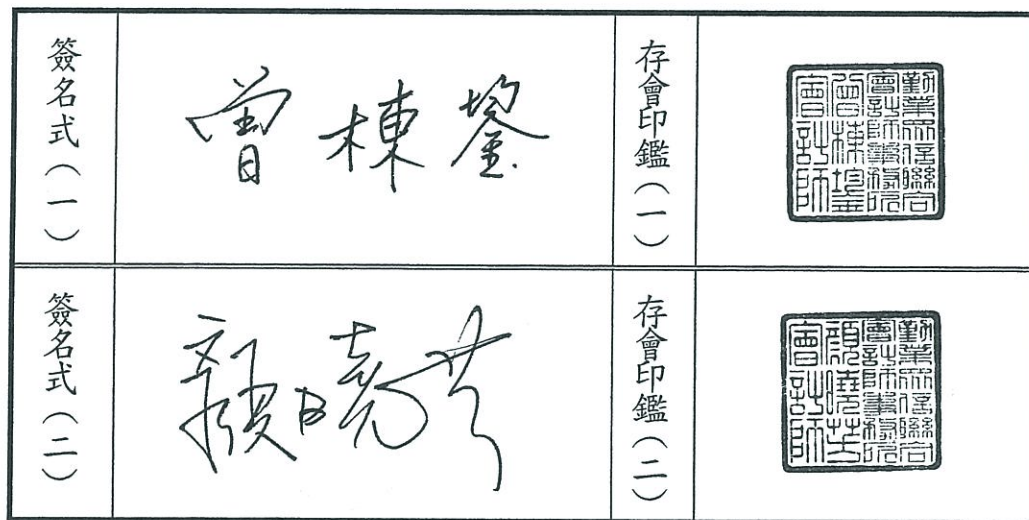 簽名式（一）
曾棟鋆
存會印鑑（一）
勤業眾信聯合
會計師事務所
曾棟鋆
會計師
簽名式（二）
顏曉芳
存會印鑑（二）
勤業眾信聯合
會計師事務所
顏曉芳
會計師